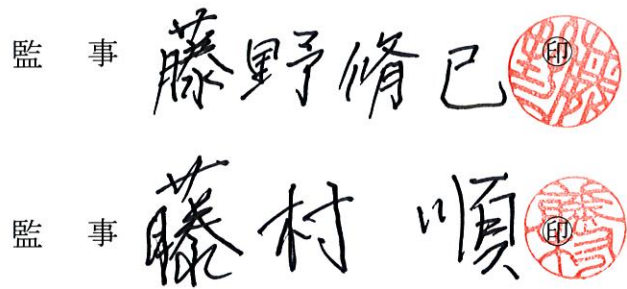 監 事 藤野脩己 印
監 事 藤村 順 印